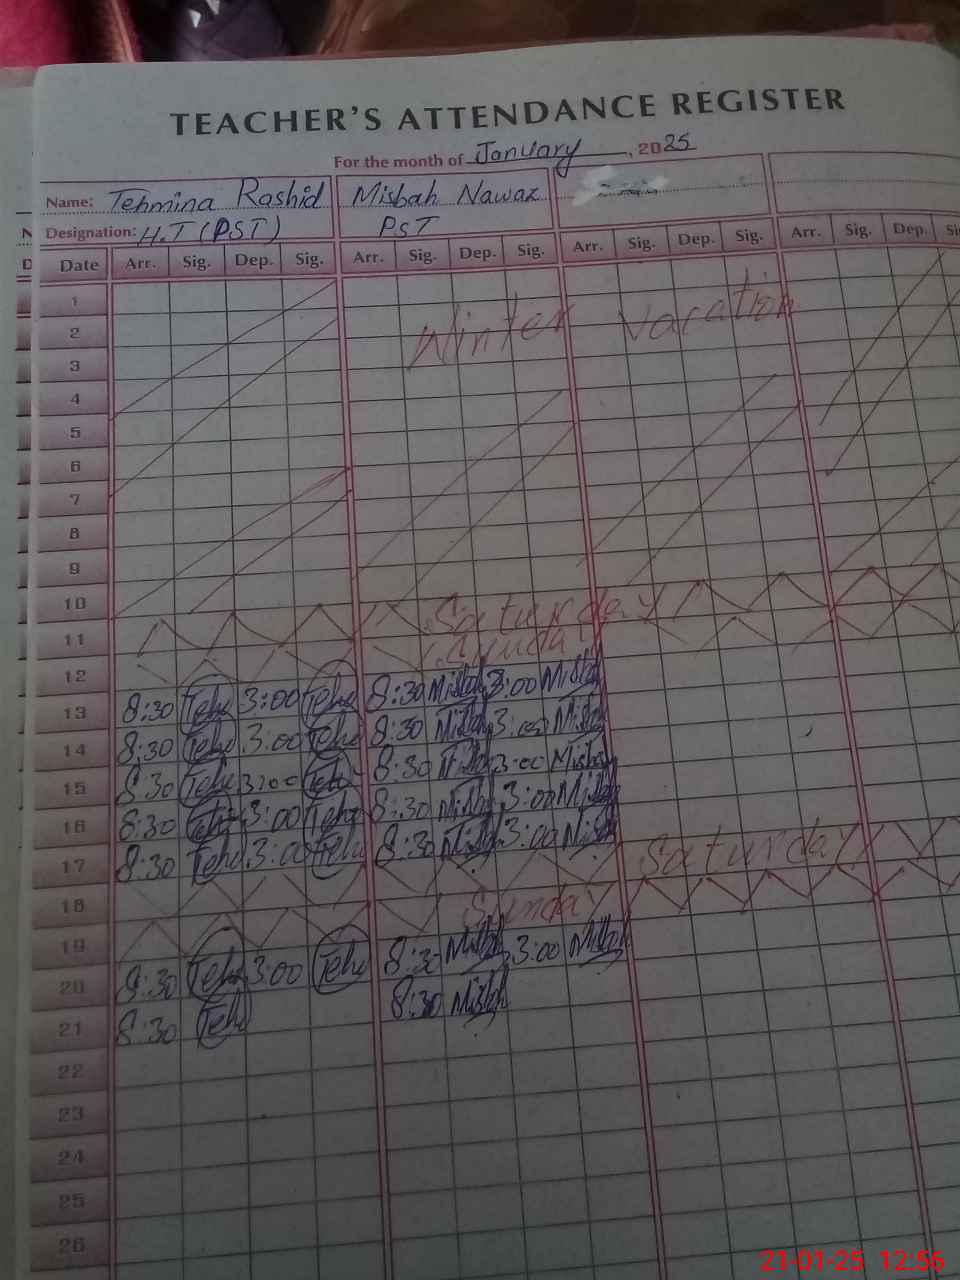 TEACHER'S ATTENDANCE REGISTER
For the month of January, 2025
Name: Tehmina Rashid Misbah Nawaz
Designation: H.T (PST) PST
Date Arr. Sig. Dep. Sig. Arr. Sig. Dep. Sig. Arr. Sig. Dep. Sig. Arr. Sig. Dep.
1
2 Winter Vacation
3
4
5
6
7
8
9
10
11 Saturday
12 Sunday
13 8:30 Tehe 3:00 Tehe 8:30 Misbah 3:00 Misbah
14 8:30 Tehe 3:00 Tehe 8:30 Misbah 3:00 Misbah
15 8:30 Tehe 3:00 Tehe 8:30 Misbah 3:00 Misbah
16 8:30 Tehe 3:00 Tehe 8:30 Misbah 3:00 Misbah
17 8:30 Tehe 3:00 Tehe 8:30 Misbah 3:00 Misbah
18 Saturday
19 Sunday
20 8:30 Tehe 3:00 Tehe 8:30 Misbah 3:00 Misbah
21 8:30 Tehe 8:30 Misbah
22
23
24
25
26
21-01-25 12:56